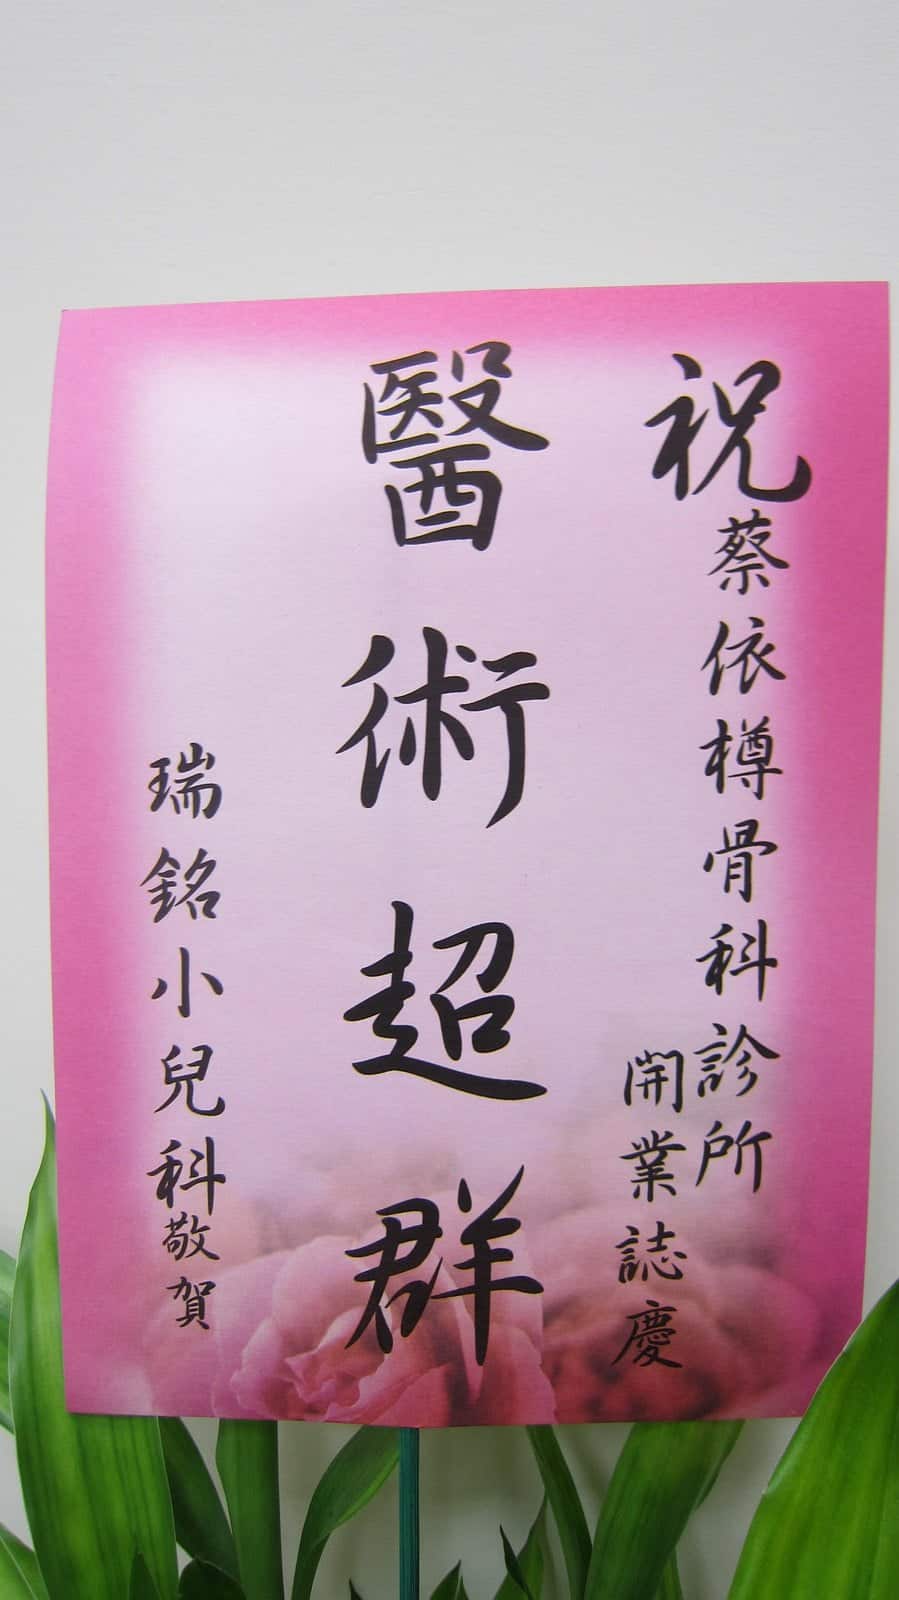 祝
蔡依樽骨科診所
開業誌慶
醫術超群
瑞銘小兒科敬賀